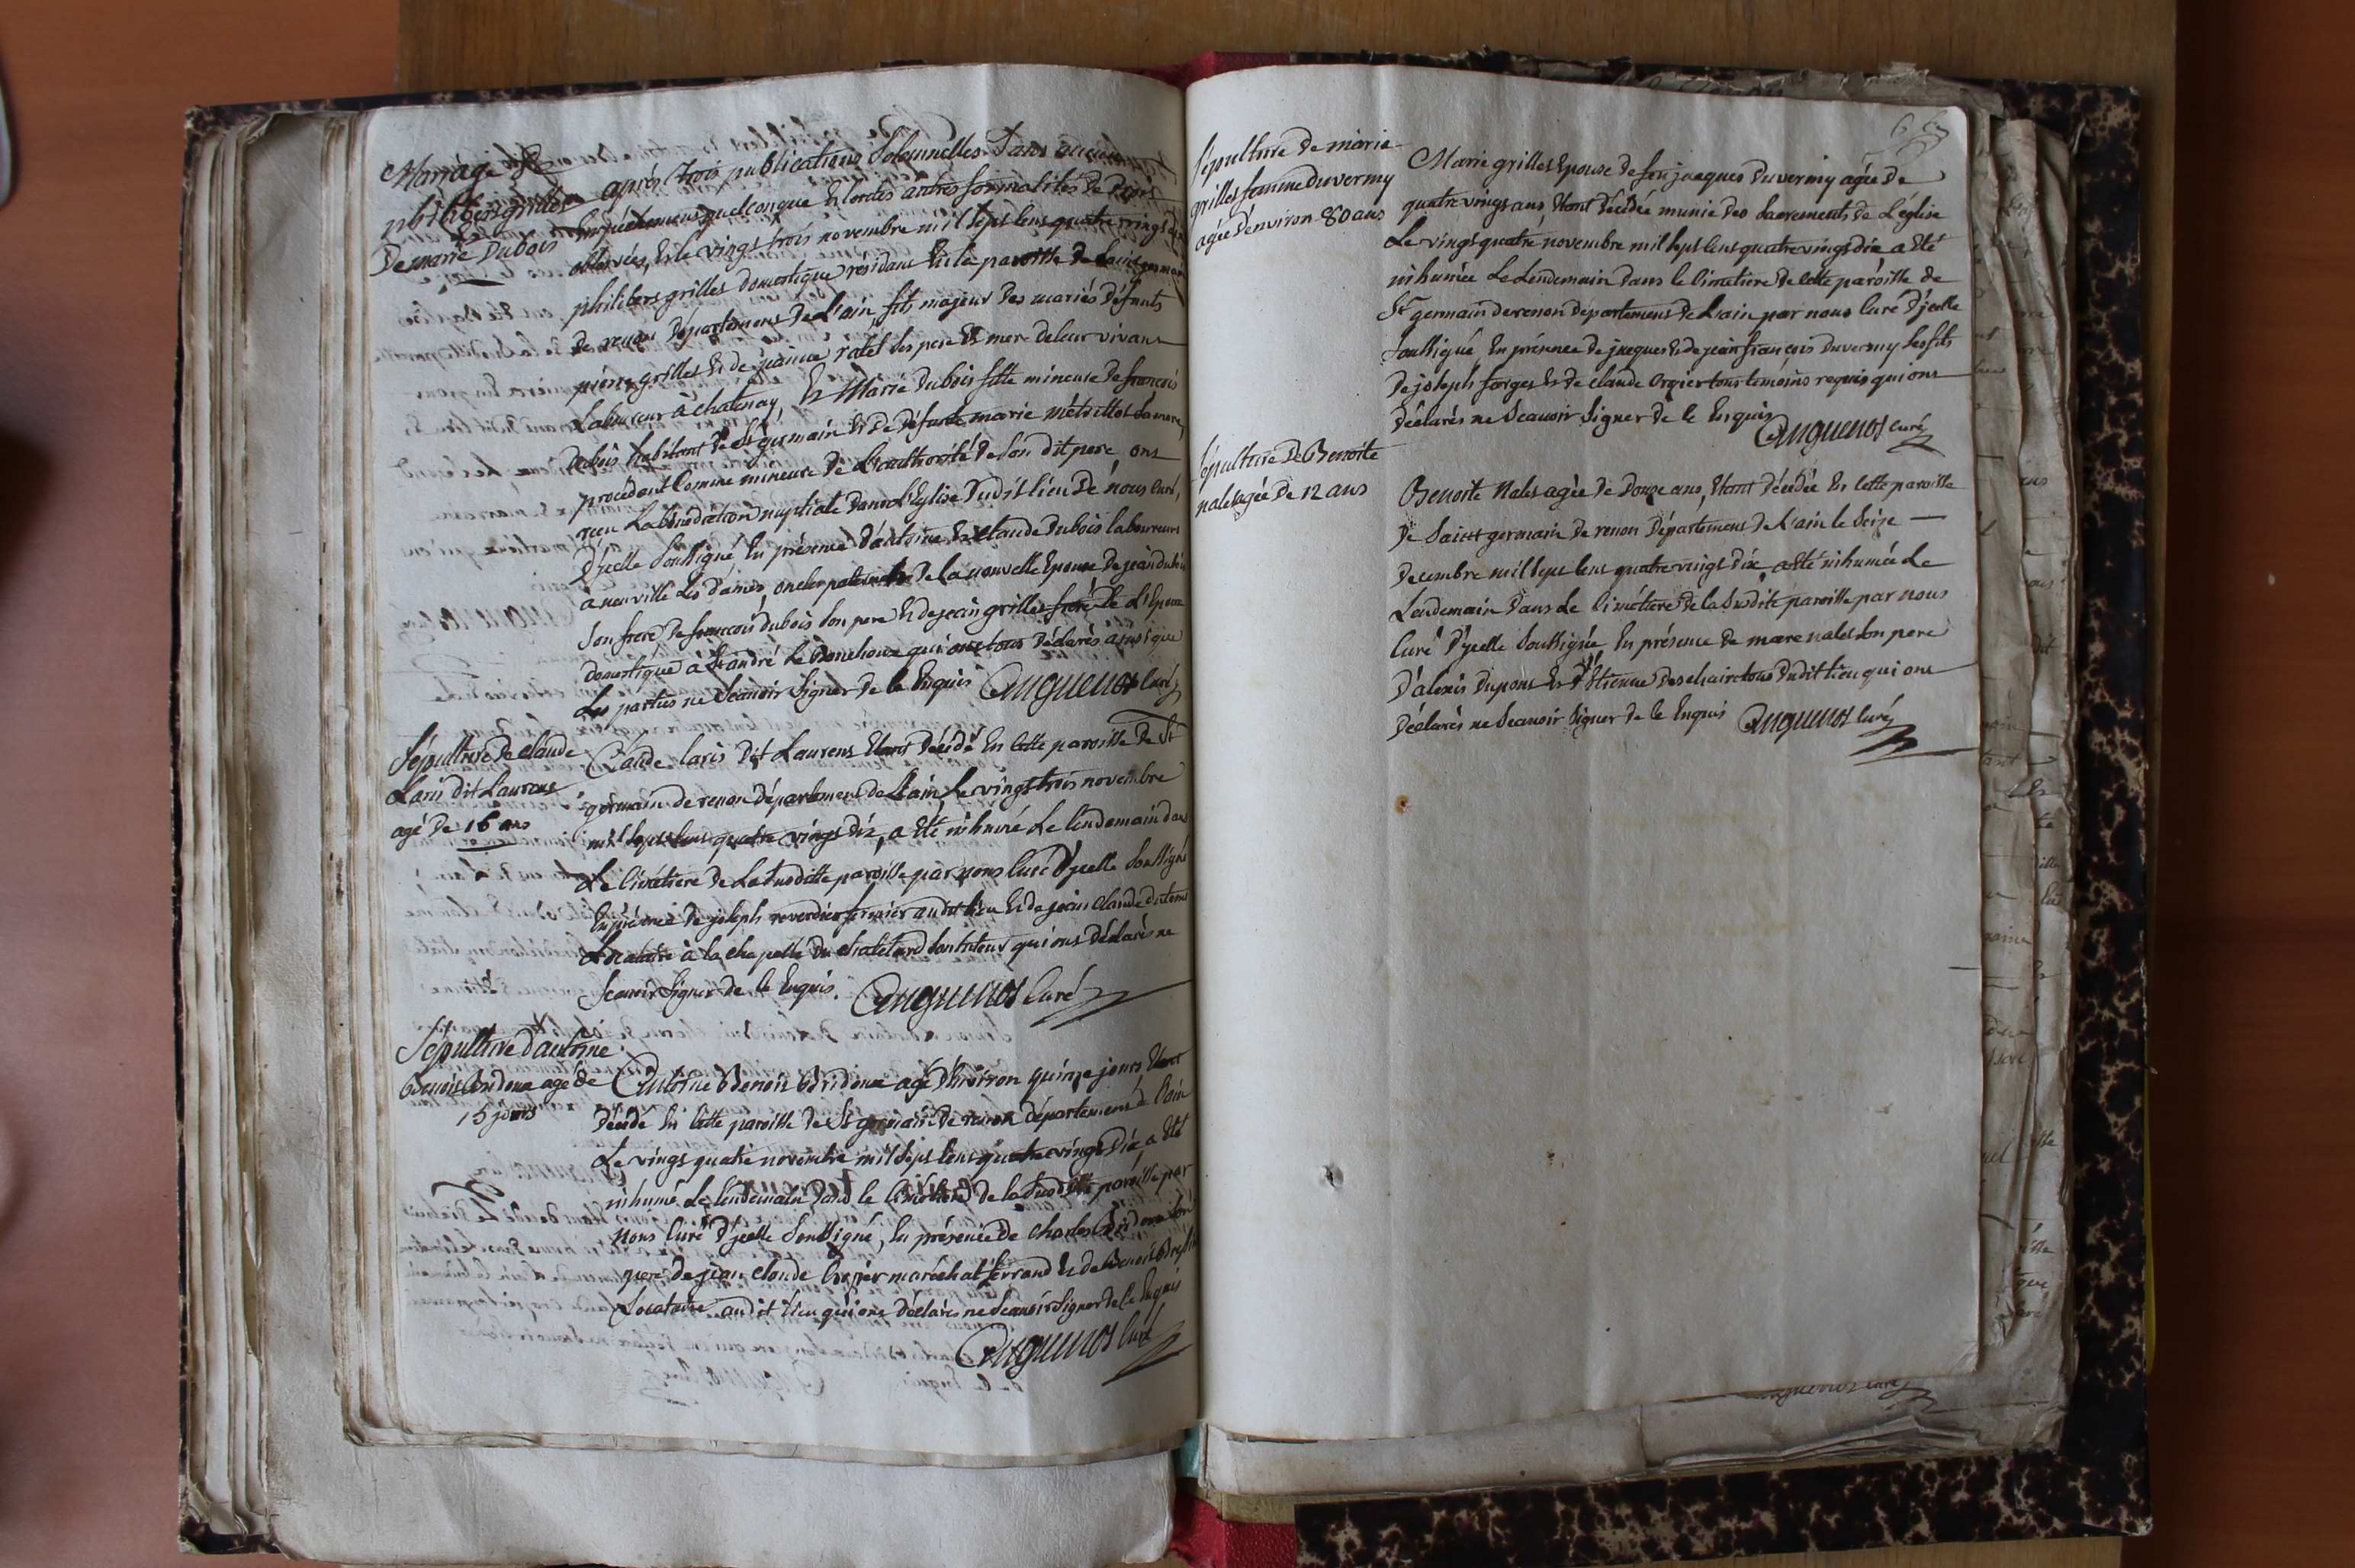 Mariage de
philibert grillet
Et
De marie Dubois
après trois publications Solemnelles Sans aucun
Empéchement quelconque Et toutes autres formalités de Droit
observées, Et le vingt trois novembre mil Sept Cent quatre vingt dix
philibert grillet domestique residant En la paroisse de Saint germain
de renon Département de L'ain, fils majeur Des mariés Défunts
pierre grillet Et de jeanne ratel Ses pere Et mere de leur vivant
Laboureur à chatenay, Et Marie Dubois fille mineure De francois
dubois habitant de St germain Et de Défunte marie Sa mere,
procédant Comme mineure De L'authorité de Son dit pere ont
reçu La bénédiction nuptiale Dans L'Eglise Dudit lieu De nous curé,
D'ycelle Soussigné En présence d'antoine Et claude Dubois laboureurs
a neuville Les dames, oncles paternels De la nouvelle Epouse De jean dubois
Son frere De francois Dubois Son pere Et de jean grillet frere de L'Epoux
domestique à St andré Le Bouchoux qui ont tous Déclarés ainsi que
Les parties ne Scavoir Signer de ce Enquis Curé
Sépulture De claude
Laris dit Laurent
agé De 16 ans
Claude laris Dit Laurent Etant Décédé En Cette paroisse De St
germain de renon Département de L'ain, Le vingt trois novembre
mil Sept Cent quatre vingt Dix, a Eté inhumé Le lendemain dans
Le Cimétiere De La Susditte paroisse par nous Curé D'ycelle Soussigné
En présence De joseph reverdier fermier audit lieu Et de jean claude
Locataire à la chapelle du chatelard Son tuteur qui ont Déclarés ne
Scavoir Signer de ce Enquis. Curé
Sépulture d'antoine
Benoit Bridoux agé de
15 jours
Antoine Benoit Bridoux agé D'environ quinze jours Etant
Décédé En Cette paroisse de St germain De renon département de L'ain
Le vingt quatre novembre mil Sept Cent quatre vingt Dix, a Eté
inhumé Le lendemain Dans le Cimétiere de la Susditte paroisse par
Nous Curé D'ycelle Soussigné, En présence De charles Bridoux Son
pere De jean claude maréchal ferrand Et de Benoit
Locataire audit lieu qui ont Déclarés ne Scavoir Signer de Ce Enquis
Curé
Sépulture De marie
grillet femme Duvermy
agée D'environ 80 ans
Marie grillet Epouse De feu jacques Duvermy agée De
quatre vingt ans, Etant Décédée munie Des Sacrements De L'église
Le vingt quatre novembre mil Sept Cent quatre vingt dix a Eté
inhumée Le Lendemain Dans le Cimetiere De Cette paroisse de
St germain de renon Département De L'ain par nous Curé D'ycelle
Soussigné, En présence De jacques Et de jean françois Duvermy Ses fils
De joseph forges Et de claude Orgier tous temoins requis qui ont
Déclarés ne Scavoir Signer de Ce Enquis
Curé
Sépulture De Benoite
nalet agée De 12 ans
Benoite Nalet agée De Douze ans, Etant Décédée En Cette paroisse
De Saint germain De renon Département De L'ain le Seize
Decembre mil Sept Cent quatre vingt Dix, a Eté inhumée Le
Lendemain Dans Le Cimétiere De la Susdite paroisse par nous
Curé D'ycelle Soussignée En présence De marc nalet Son pere
D'alexis Dupont Et D'Etienne Deschaire tous Dudit lieu qui ont
Déclarés ne Scavoir Signer de Ce Enquis Curé